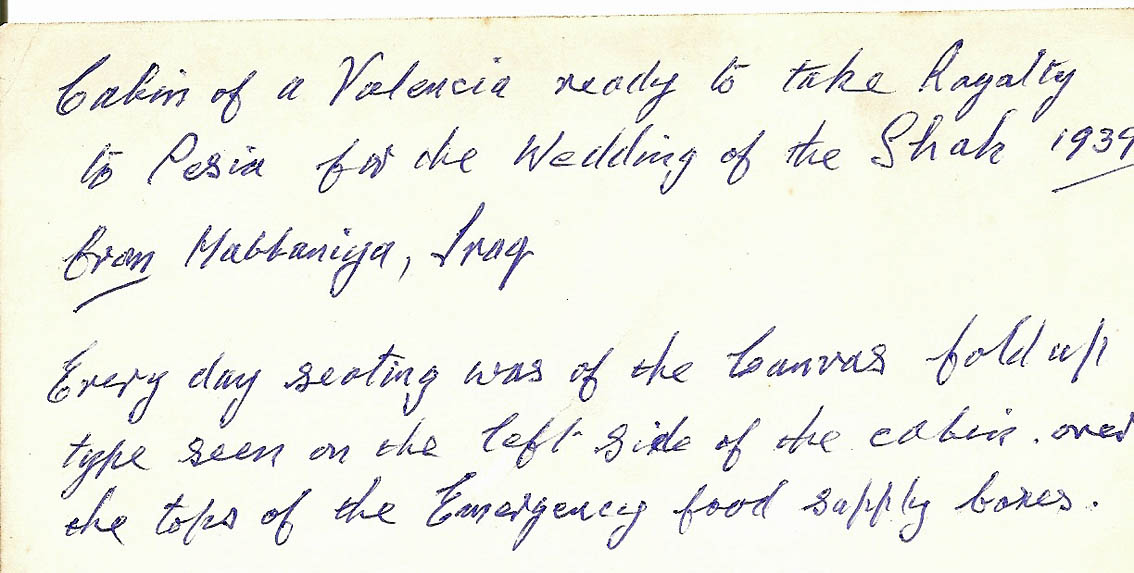 Cabin of a Valencia ready to take Royalty
to Pesia for the Wedding of the Shah 1939
from Habbaniya, Iraq
Every day seating was of the Canvas fold up
type seen on the left side of the cabin. over
the tops of the Emergency food supply boxes.